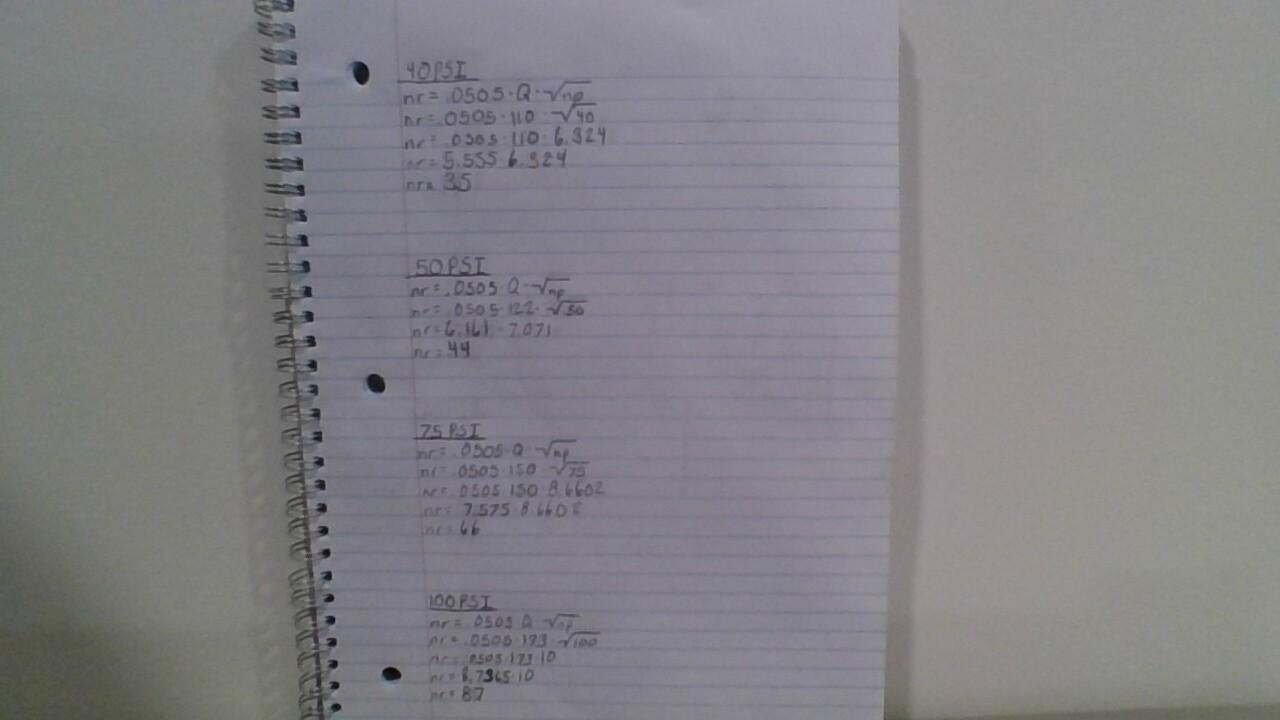 40 PSI
nr = .0505 · Q · √np
nr = .0505 · 110 · √40
nr = .0505 · 110 · 6.324
nr = 5.555 · 6.324
nr = 35
50 PSI
nr = .0505 · Q · √np
nr = .0505 · 122 · √50
nr = 6.161 · 7.071
nr = 44
75 PSI
nr = .0505 · Q · √np
nr = .0505 · 150 · √75
nr = .0505 · 150 · 8.6602
nr = 7.575 · 8.6602
nr = 66
100 PSI
nr = .0505 · Q · √np
nr = .0505 · 173 · √100
nr = .0505 · 173 · 10
nr = 8.7365 · 10
nr = 87